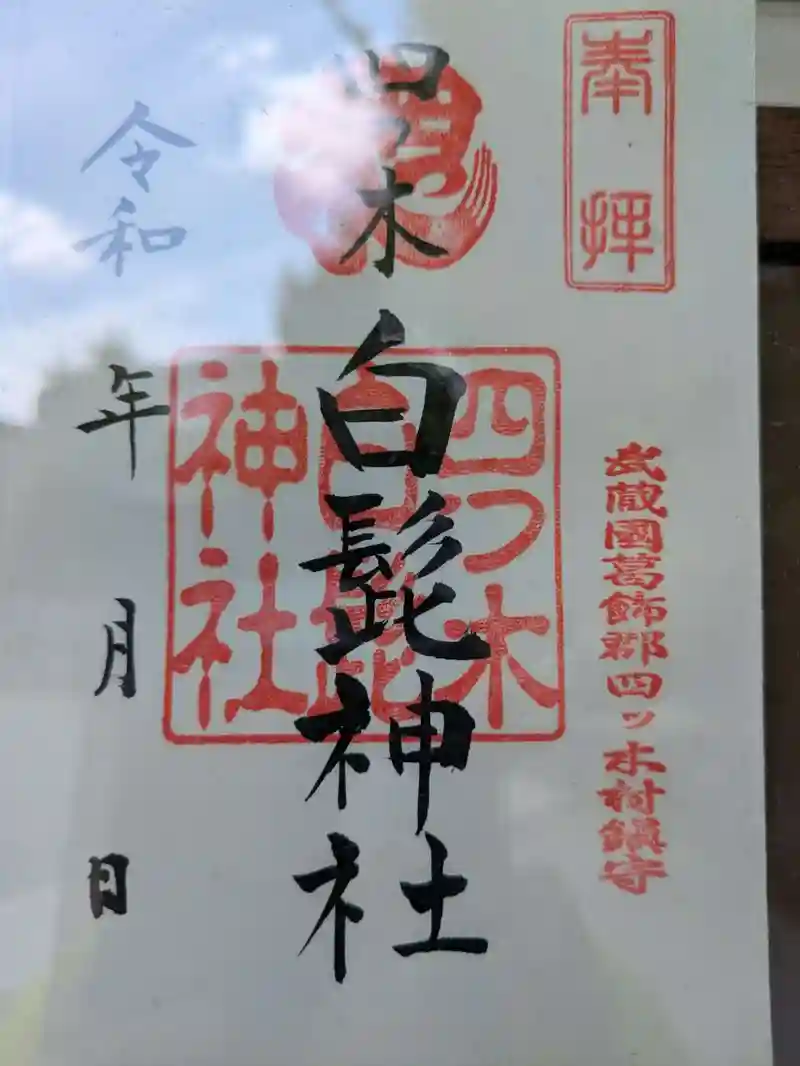 奉拝
武蔵國葛飾郡四ッ木村鎮守
四ツ木
白髭神社
四ツ木
白髭
神社
令和 年 月 日